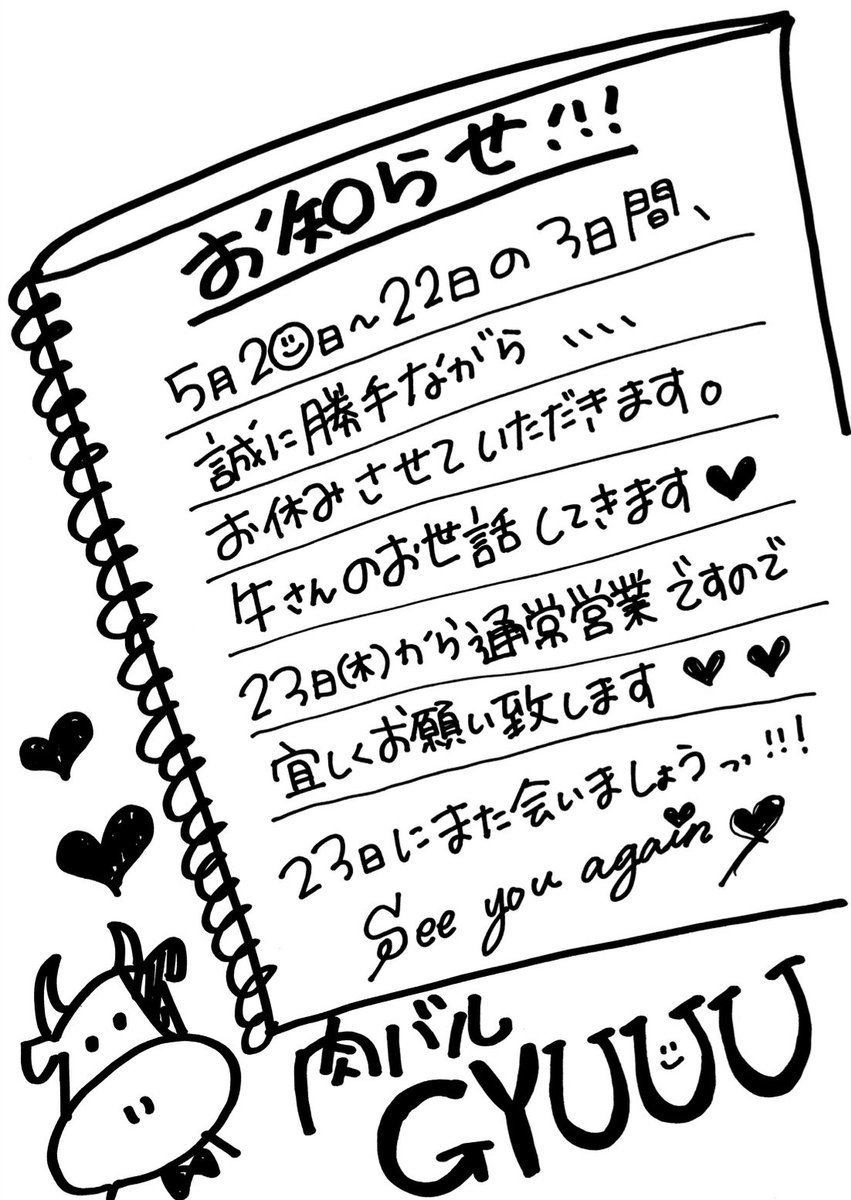 お知らせ!!!
5月20日〜22日の3日間、
誠に勝手ながら、、、、
お休みさせていただきます。
牛さんのお世話してきます♥
23日(木)から通常営業ですので
宜しくお願い致します♥♥
23日にまた会いましょうっっ!!!
See you again♥
肉バル
GYUUU